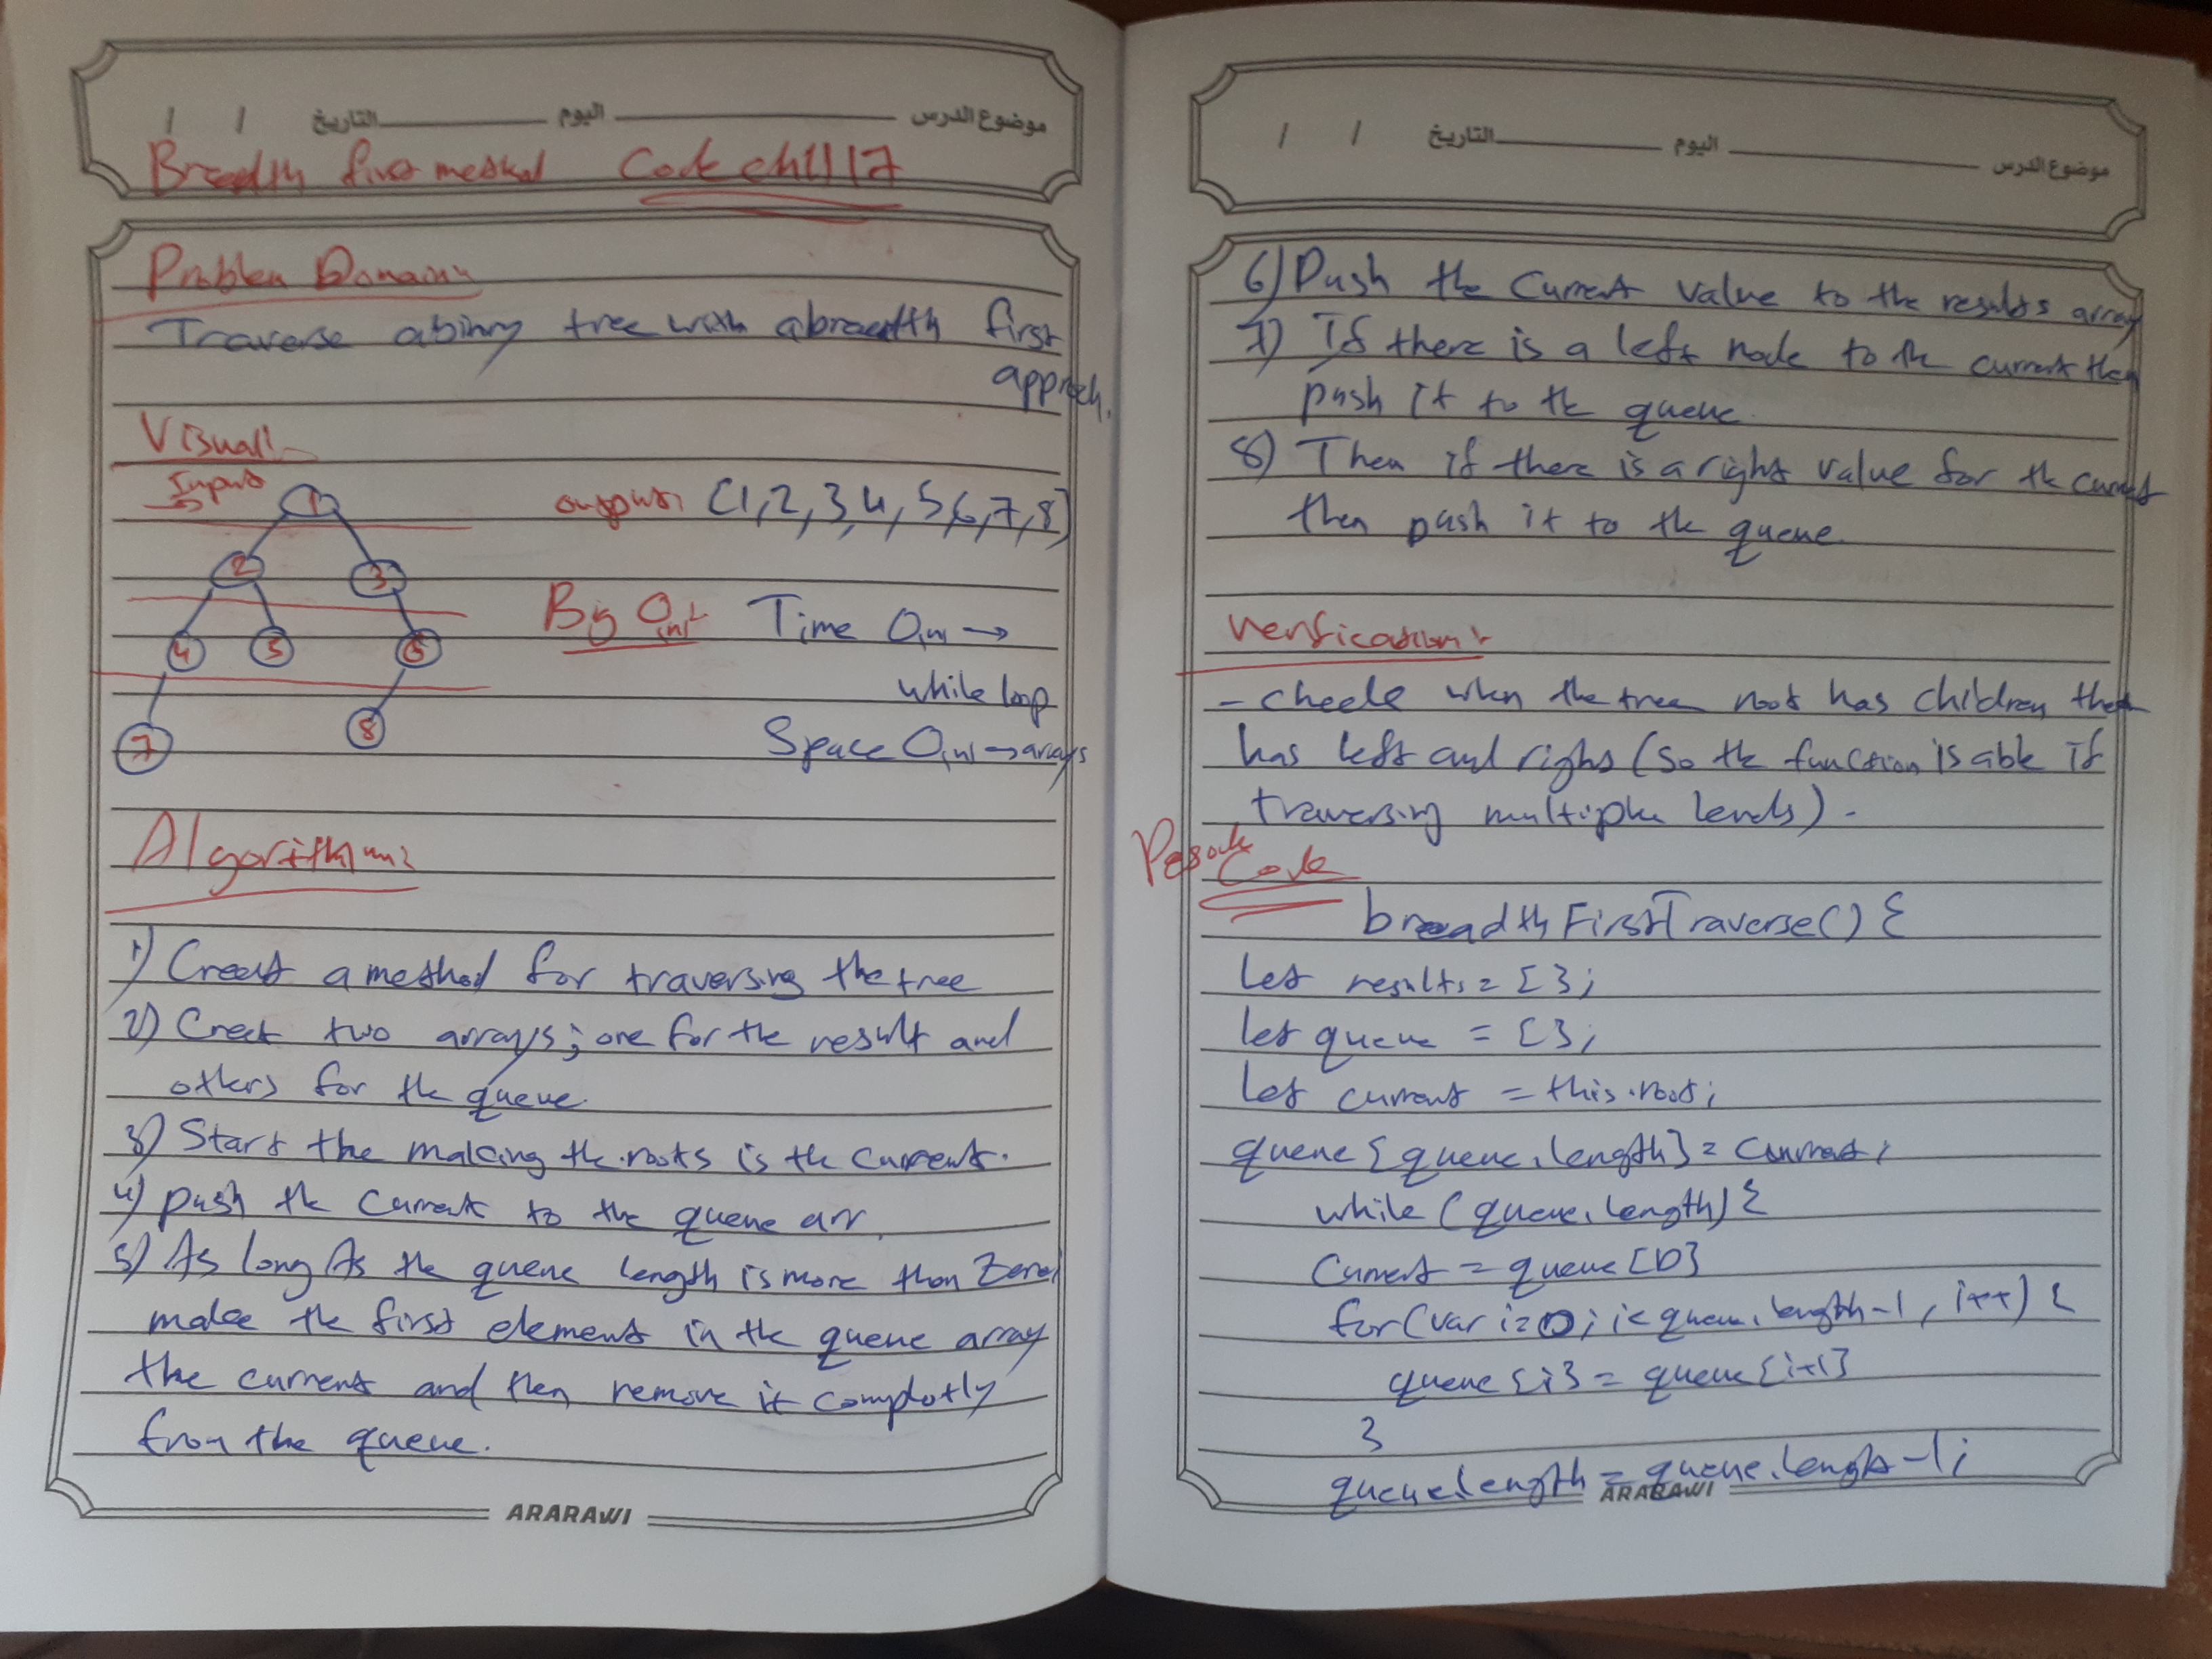 موضوع الدرس اليوم التاريخ / /
Breadth first method Code chll 17
Problem Domain:
Traverse a binry tree with a braedth first
approch.
Visual:
Input
output: [1,2,3,4,5,6,7,8]
1
2 3
4 5 6
7 8
Big O(n): Time O(n) →
while loop
Space O(n) → arrays
Algorithm:
1) Creat a method for traversing the tree
2) Creat two arrays; one for the result and
others for the queue.
3) Start the making the roots is the current.
4) push the Current to the queue arr.
5) As long As the queue length is more than Zero,
make the first element in the queue array
the current and then remove it complotly
from the queue.
ARARAWI
موضوع الدرس اليوم التاريخ / /
6) Push the Current value to the results array
7) If there is a left node to the current then
push it to the queue.
8) Then if there is a right value for the current
then push it to the queue.
Verification:
- check when the tree root has children that
has left and right (so the function is able if
traversing multiple levels).
Code
breadthFirstTraverse() {
let results = [];
let queue = [];
let current = this.root;
queue[queue.length] = current;
while (queue.length) {
Current = queue[0]
for (var i=0; i<queue.length-1, i++) {
queue[i] = queue[i+1]
}
queue.length = queue.length -1;
ARARAWI